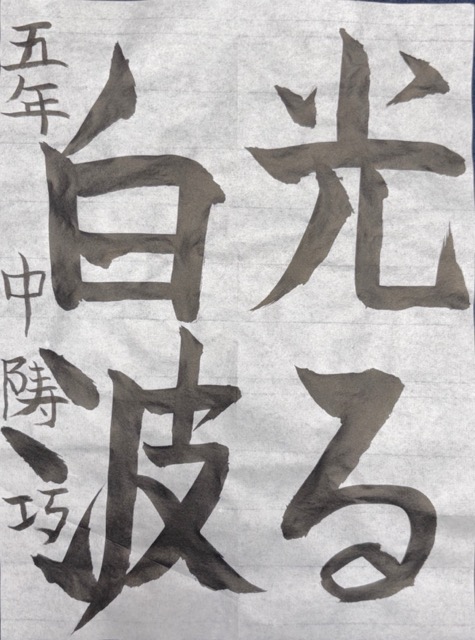 光る
白波
五年 中陦 巧